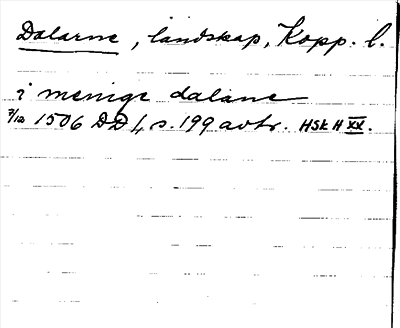 Dalarne, landskap, Kopp. l.
i menige dalane
7/12 1506 DD 4 s. 199 avtr. HSK H XX.